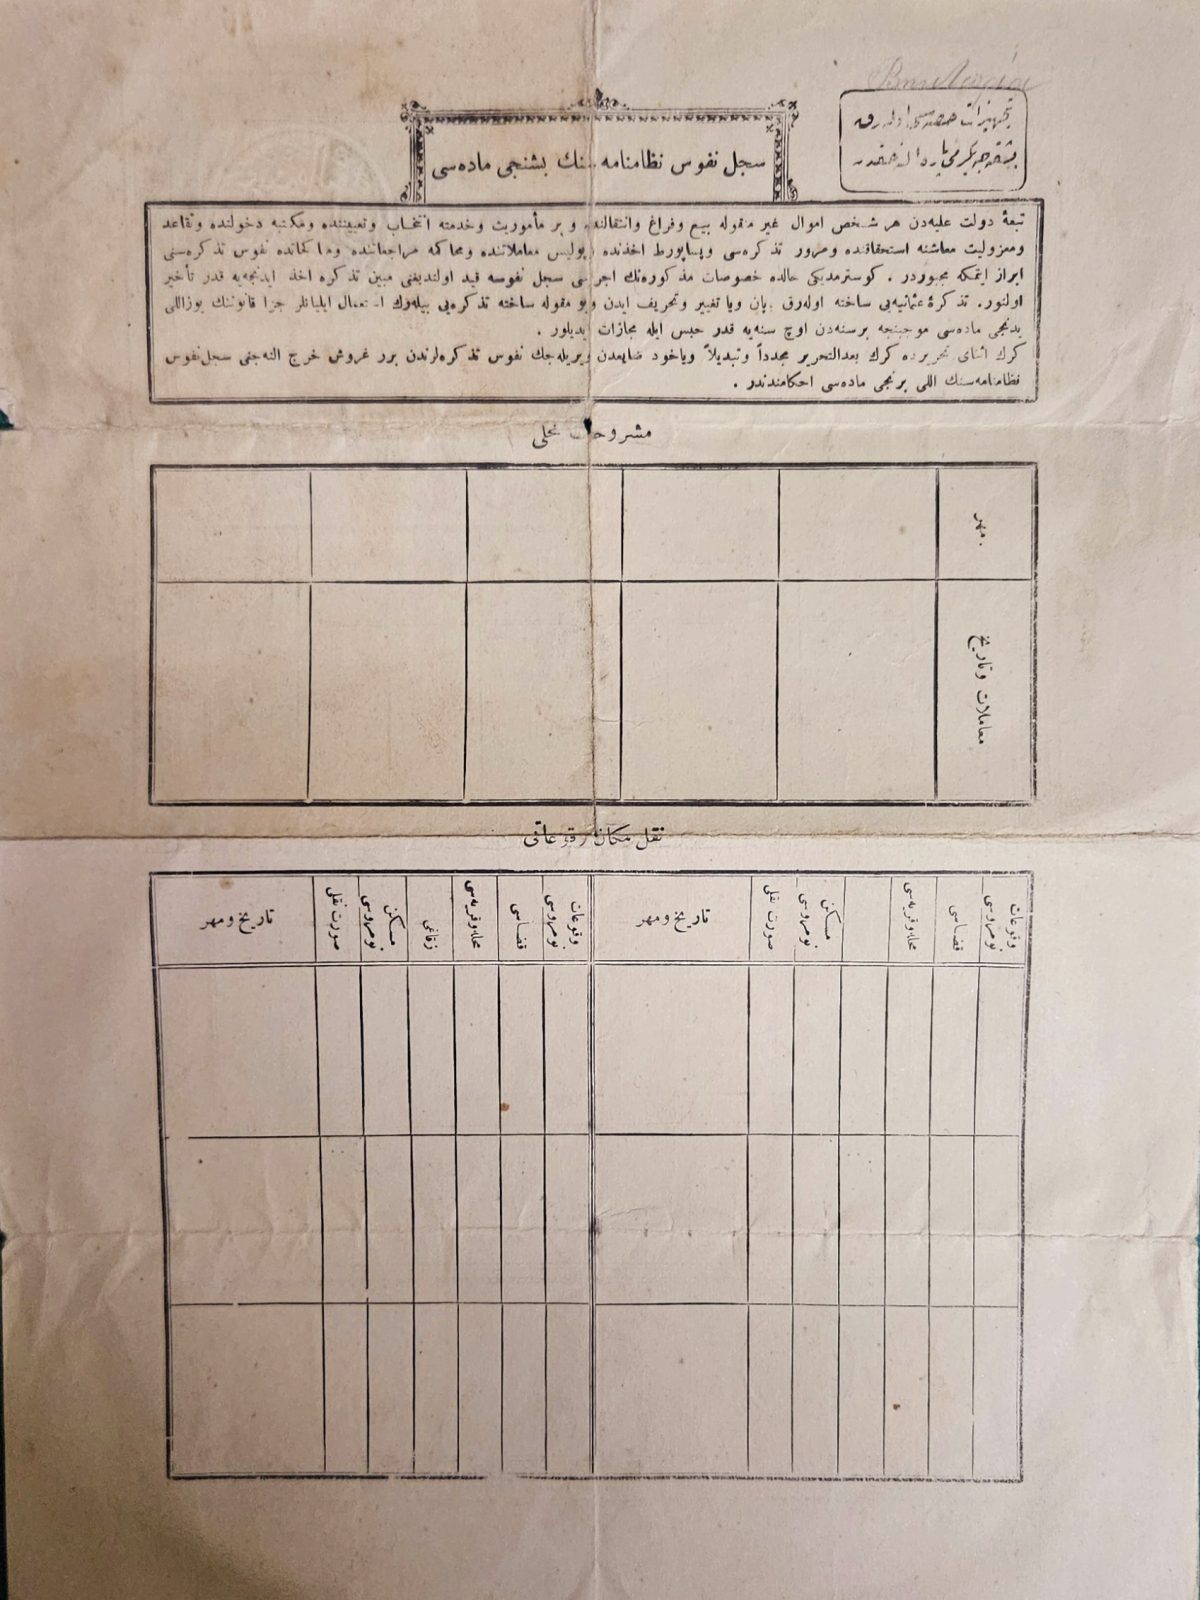 تجهیزات حصه‌سی اوله‌رق
بشقه‌جه یكرمی پاره النه‌جقدر
سجل نفوس نظامنامه‌سنك بشنجی ماده‌سی
تبعهٔ دولت علیه‌دن هر شخص اموال غیر منقوله بیع وفراغ وانتقالنده و بر مأموریت وخدمته انتخاب وتعییننده ومكتبه دخولنده وتقاعد
ومعزولیت معاشنه استحقاقنده ومرور تذكره‌سی وپساپورط اخذنده وپولیس معاملاتنده ومحاكمه مراجعاتنده ومحاكماتده نفوس تذكره‌سنی
ابراز ایتمكه مجبوردر . كوسترمدیكی حالده خصوصات مذكوره‌نك اجراسی سجل نفوسه قید اولندیغنی مبین تذكره اخذ ایدنجه‌یه قدر تأخیر
اولنور. تذكرهٔ عثمانیه‌یی ساخته اوله‌رق یاپان ویا تغییر وتحریف ایدن وبو مقوله ساخته تذكره‌یی بیله‌رك استعمال ایلیانلر جزا قانوننك یوزاللی
یدنجی ماده‌سی موجبنجه برسنه‌دن اوچ سنه‌یه قدر حبس ایله مجازات ایدیلور .
كرك اثنای تحریرده كرك بعدالتحریر مجدداً وتبدیلاً ویاخود ضایعدن ویریله‌جك نفوس تذكره‌لرندن برر غروش خرج النه‌جغی سجل‌نفوس
نظامنامه‌سنك اللی برنجی ماده‌سی احكامندندر .
مشروحات محلی
مهر
معاملات وتاریخ
نقل مكان وقوعاتی
وقوعات نومروسی
قضاسی
محله‌وقریه‌سی
مسكن نومروسی
صورت نقلی
تاریخ ومهر
وقوعات نومروسی
قضاسی
محله‌وقریه‌سی
زقاغی
مسكن نومروسی
صورت نقلی
تاریخ ومهر